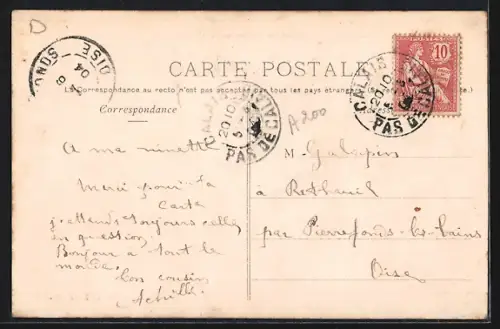 D
OISE
04
CARTE POSTALE
La Correspondance au recto n'est pas acceptée par tous les pays étrangers
Correspondance
CALAIS
20 10
PAS DE CALAIS
CALAIS
20 10
PAS DE CALAIS
10
A 200
A ma ninette
Merci pour ta
carte
j'attends toujours celle
en question,
Bonjour a tout le
monde.
Ton cousin
Achille
M. Galopin
à Retheuil
par Pierrefonds-les-bains
Oise